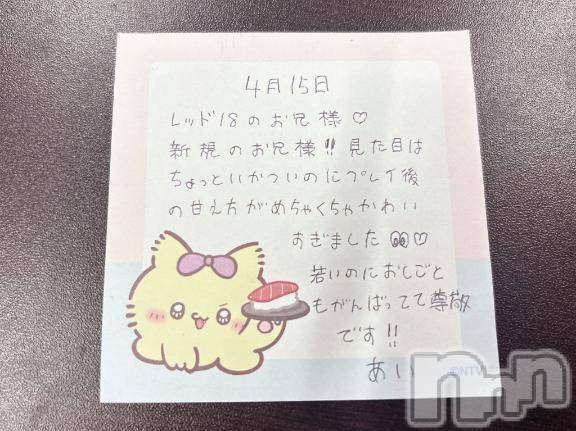 4月15日
レッド18のお兄様♡
新規のお兄様!!見た目は
ちょっといかついのにプレイ後
の甘え方がめちゃくちゃかわい
すぎました👀♡
若いのにおしごと
もがんばってて尊敬
です!!
あい
©NTV
nnn